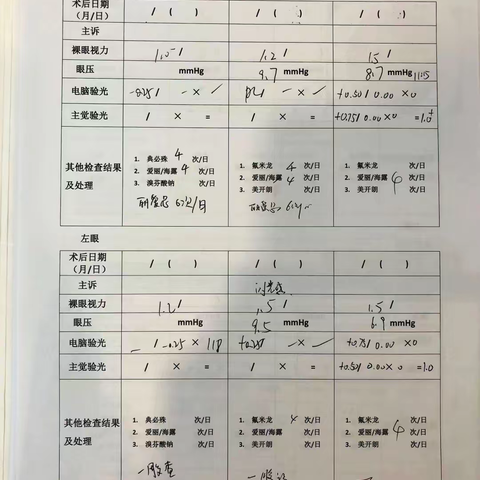 术后日期 （月/日） / ( ) / ( ) / ( )
主诉
裸眼视力 1.0 / 1.2 / 1.5 /
眼压 mmHg 9.7 mmHg 8.7 mmHg
电脑验光 -0.25 / - × / - × +0.50 / 0.00 × 0
主觉验光 / × = / × = +0.75 / 0.00 × 0 = 1.0+
其他检查结果及处理
1. 典必殊 4 次/日
2. 爱丽/海露 4 次/日
3. 溴芬酸钠 次/日
1. 氟米龙 4 次/日
2. 爱丽/海露 4 次/日
3. 美开朗 次/日
1. 氟米龙 次/日
2. 爱丽/海露 4 次/日
3. 美开朗 次/日
左眼
术后日期 （月/日） / ( ) / ( ) / ( )
主诉 闪光感
裸眼视力 1.2 / 1.5 / 1.5 /
眼压 mmHg 9.5 mmHg 6.9 mmHg
电脑验光 - / -0.25 × 118 +0.25 / - × +0.75 / 0.00 × 0
主觉验光 / × = / × = +0.50 / 0.00 × 0 = 1.0
其他检查结果及处理
1. 典必殊 次/日
2. 爱丽/海露 次/日
3. 溴芬酸钠 次/日
1. 氟米龙 4 次/日
2. 爱丽/海露 次/日
3. 美开朗 次/日
1. 氟米龙 次/日
2. 爱丽/海露 4 次/日
3. 美开朗 次/日